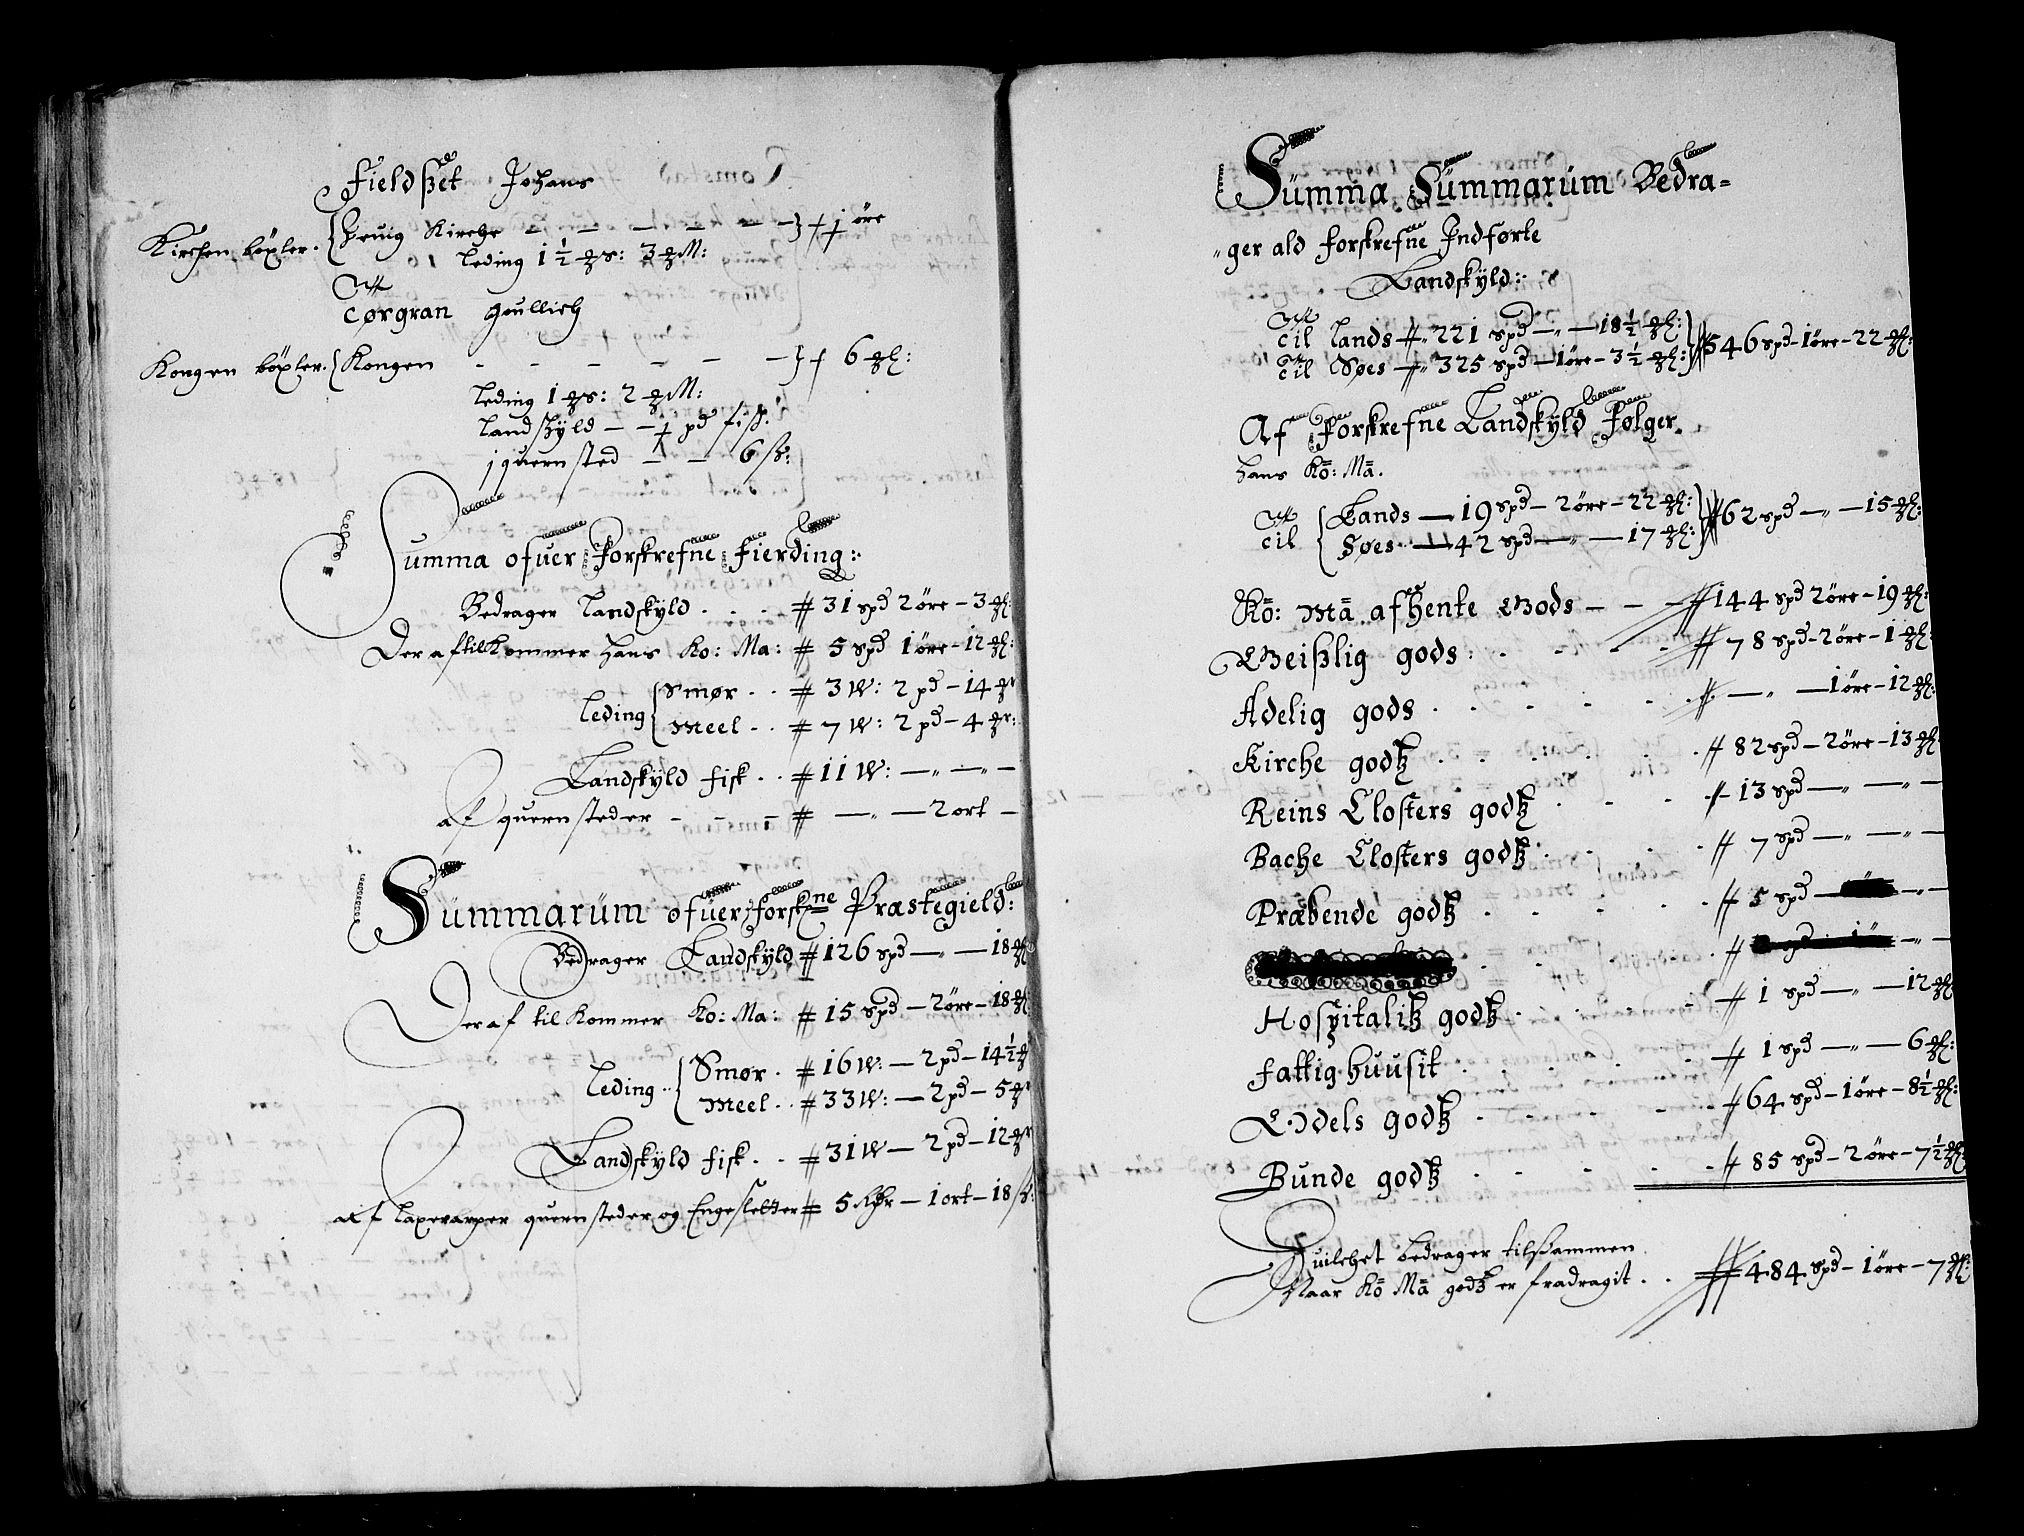 Fieldset Johans
Kirchen böxler. Hevig Kirche - - - - - 1 öre
leding 1½ s: 3 M:
Cørgran Gullich
Kongen böxler. Kongen - - - - - - 6
leding 1 s: 2 M:
landskyld - - pd fisk:
jquernsted - - 6 s:
Summa ofuer Forskrefne Fierding:
Bedrager landskyld . . . 31 spd 2 öre - 3
Der af tilkommer hans Ko: Ma: 5 spd 1 öre - 12
leding Smør . . 3 W: 2 pd - 14
Meel . . 7 W: 2 pd - 4
Landskyld fisk . . 11 W: - „ - „ -
af quernsteder - - - - „ - 2 ort -
Summarüm ofuer forskne Præstegield:
Bedrager Landskyld 126 spd - „ - 18
Der af til kommer Ko: Ma: 15 spd - 2 öre - 18
leding . . Smør . 16 W: - 2 pd - 14½
Meel . . 33 W: - 2 pd - 5
Landskyld fisk . . 31 W - 2 pd - 12
af laxevarper quernsteder og Engesletter 5 - 1 ort - 18
Sümma Sümmarüm Bedra=
„ger ald forskrefne Indførte
Landskyld:
Til lands 221 spd - „ - 18½ 546 spd - 1 öre - 22
Til Søes 325 spd - 1 öre - 3½
Af Forskrefne Landskyld Følger.
hans Kö: Mā.
Til Lands - 19 spd - 2 öre - 22 62 spd - „ - 15
Søes - 42 spd - „ - 17
Kö: Mā afhente Gods - - - 144 spd 2 öre - 19
Geistlig gods: . . . 78 spd - 2 öre - 1
Adelig gods . . . . - „ - 1 öre - 12
Kirche godtz . . . . 82 spd - 2 öre - 13
Reins Closters godtz . . . 13 spd - „ - „ -
Bache Closters godtz . . . 7 spd - „ - „ -
Præbende godtz . . . . 5 spd - „ -
Hospitalitz godtz . . . 1 spd - „ - 12
fattighuusit . . . . 1 spd - „ - 6
Odels godtz . . . . 64 spd - 1 öre - 8½
Bunde godtz . . . . 85 spd - 2 öre - 7½
Huilchet bedrager tilsammen
Naar Kö Mā godtz er fradragit . . 484 spd - 1 öre - 7